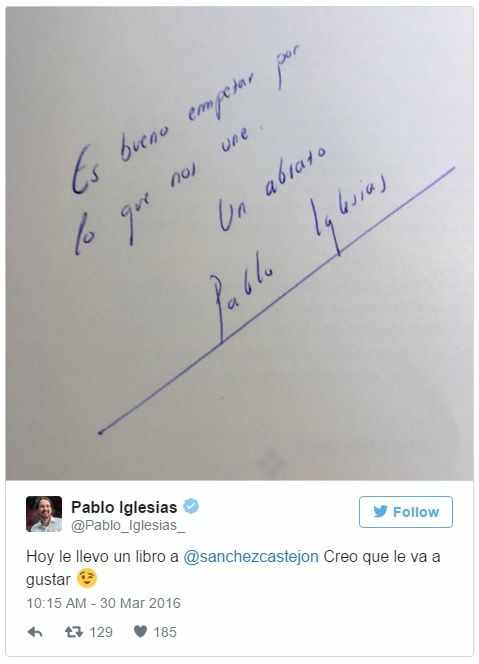 Es bueno empezar por
lo que nos une.
Un abrazo
Pablo Iglesias
Pablo Iglesias
@Pablo_Iglesias_
Follow
Hoy le llevo un libro a @sanchezcastejon Creo que le va a
gustar 😉
10:15 AM - 30 Mar 2016
129 185